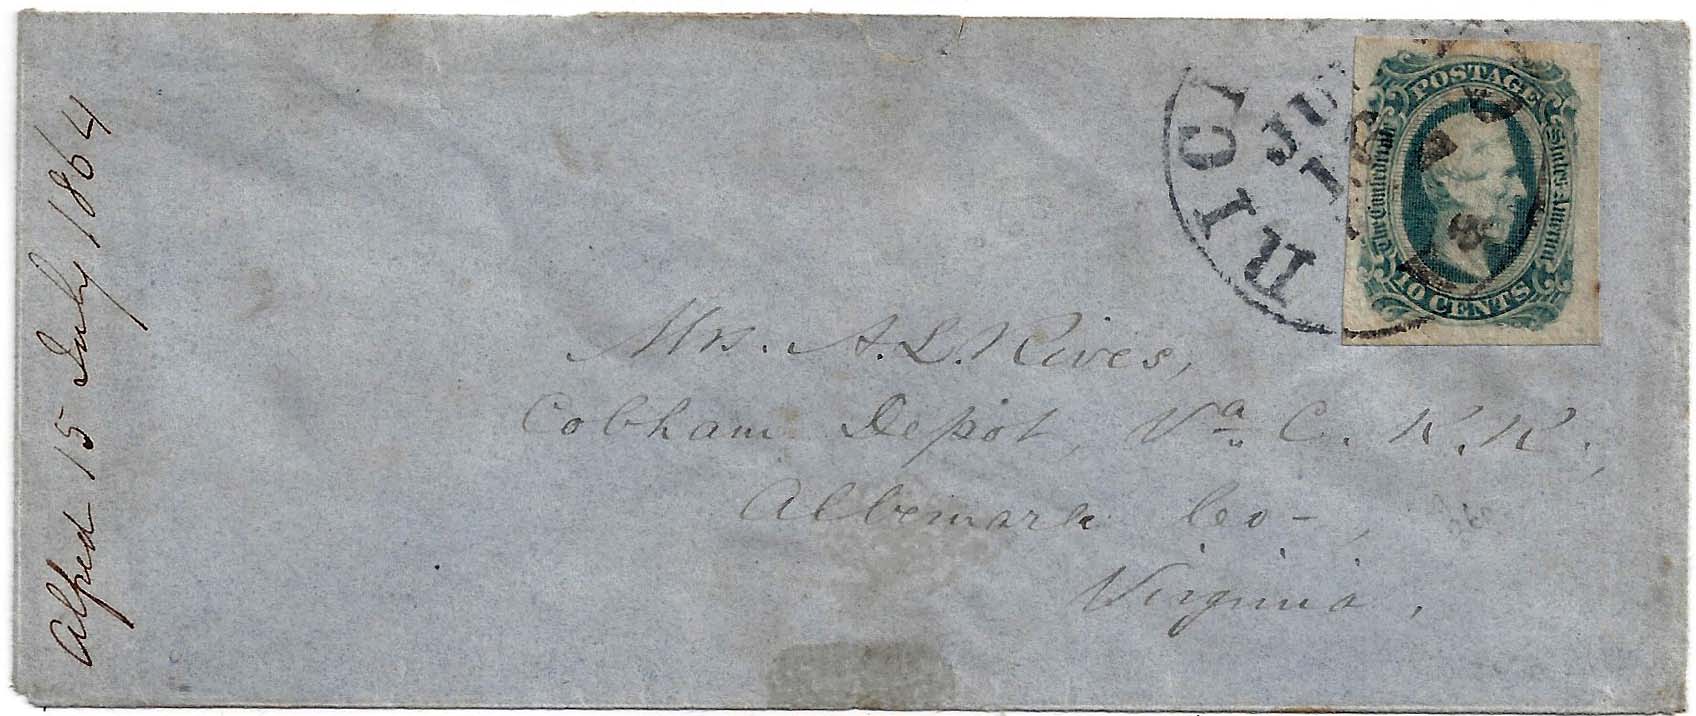 Alfred 15 July 1864
RICH
JUL
POSTAGE
The Confederate States America
10 CENTS
Mrs. A. L. Rives,
Cobham Depot, Va. C. R. R.,
Albemarle Co-,
Virginia.